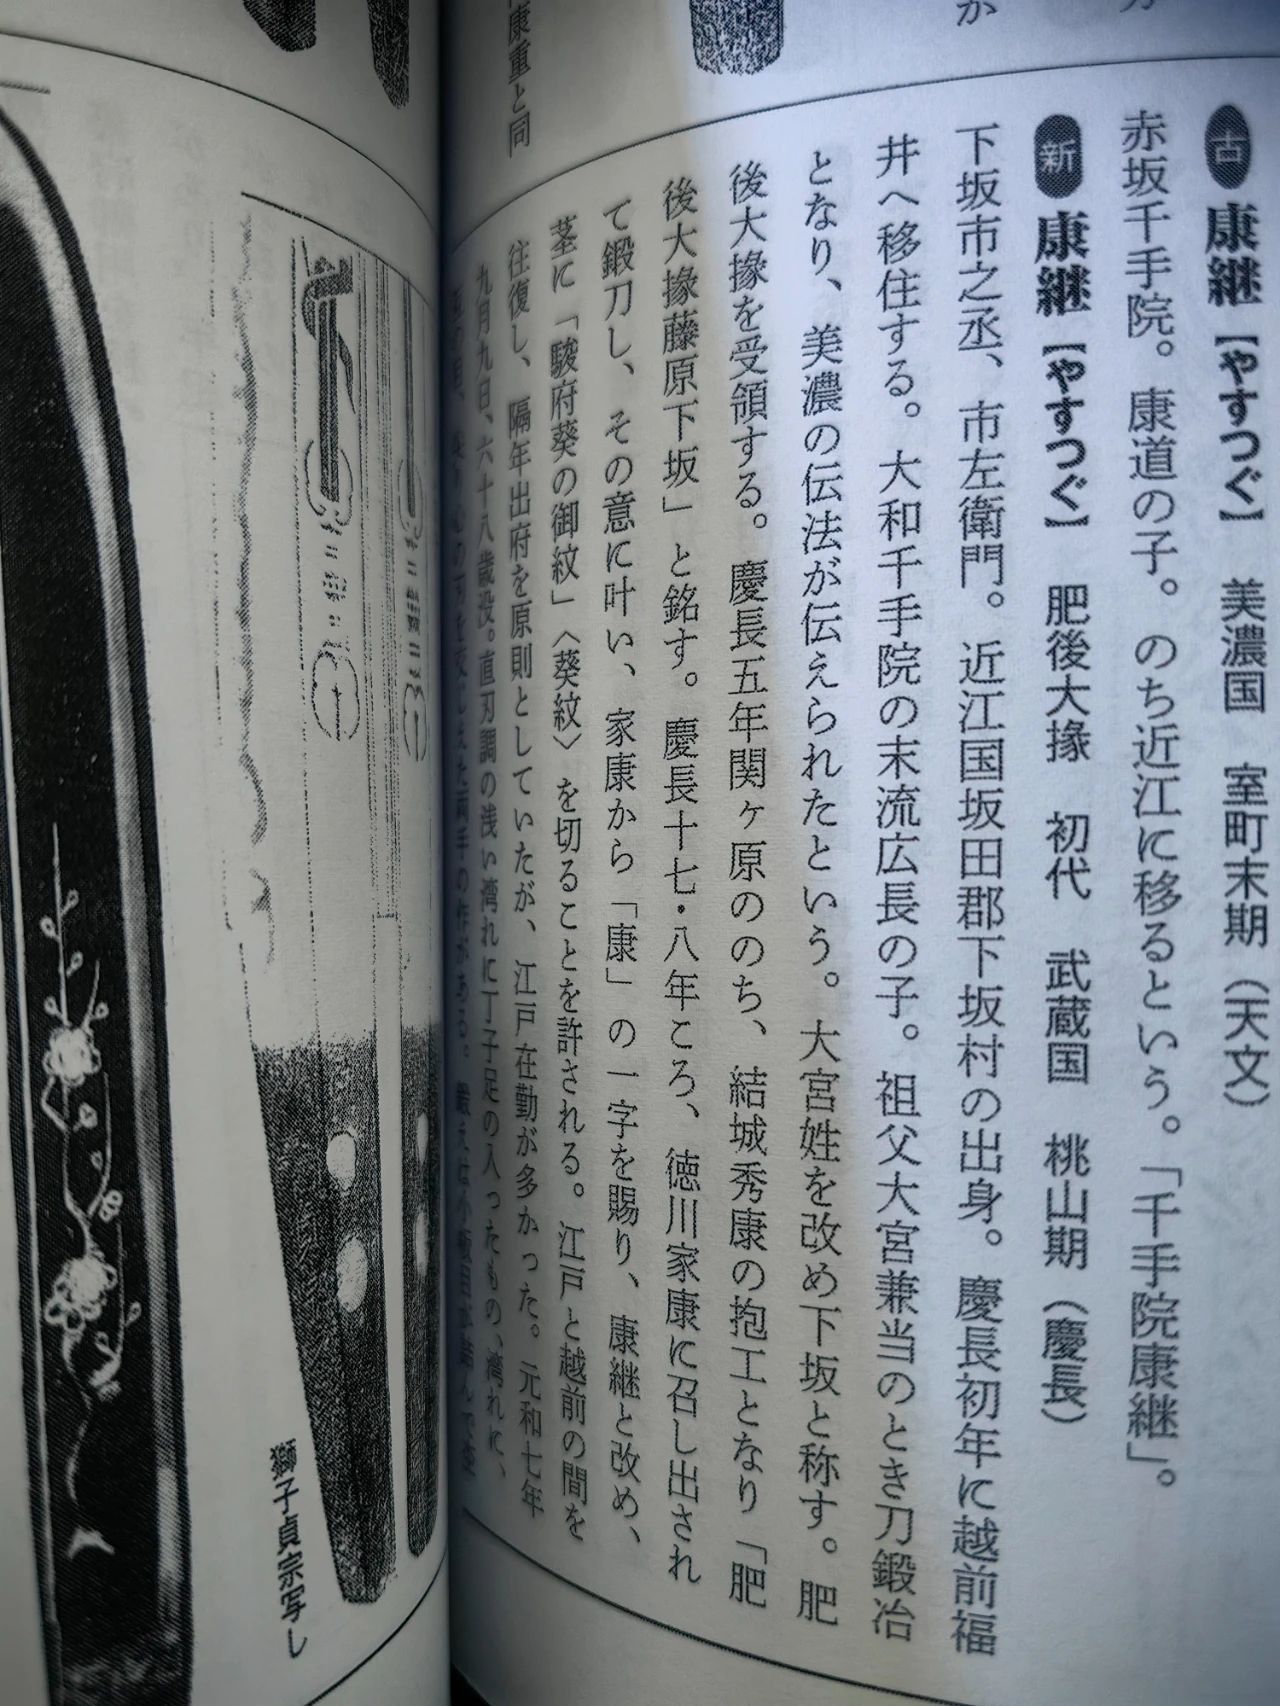 古 康継【やすつぐ】 美濃国 室町末期（天文）
赤坂千手院。康道の子。のち近江に移るという。「千手院康継」。
新 康継【やすつぐ】 肥後大掾 初代 武蔵国 桃山期（慶長）
下坂市之丞、市左衛門。近江国坂田郡下坂村の出身。慶長初年に越前福
井へ移住する。大和千手院の末流広長の子。祖父大宮兼当のとき刀鍛冶
となり、美濃の伝法が伝えられたという。大宮姓を改め下坂と称す。肥
後大掾を受領する。慶長五年関ヶ原ののち、結城秀康の抱工となり「肥
後大掾藤原下坂」と銘す。慶長十七・八年ころ、徳川家康に召し出され
て鍛刀し、その意に叶い、家康から「康」の一字を賜り、康継と改め、
茎に「駿府葵の御紋」〈葵紋〉を切ることを許される。江戸と越前の間を
往復し、隔年出府を原則としていたが、江戸在勤が多かった。元和七年
九月九日、六十八歳没。直刃調の浅い湾れに丁子足の入ったもの、湾れに、
を交じえた両手の作がある。鍛えは小板目が詰んで
康重と同
獅子貞宗写し